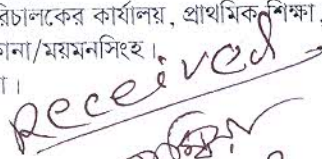 রিচালকের কার্যালয়, প্রাথমিক শিক্ষা,
না/ময়মনসিংহ।
।
Received